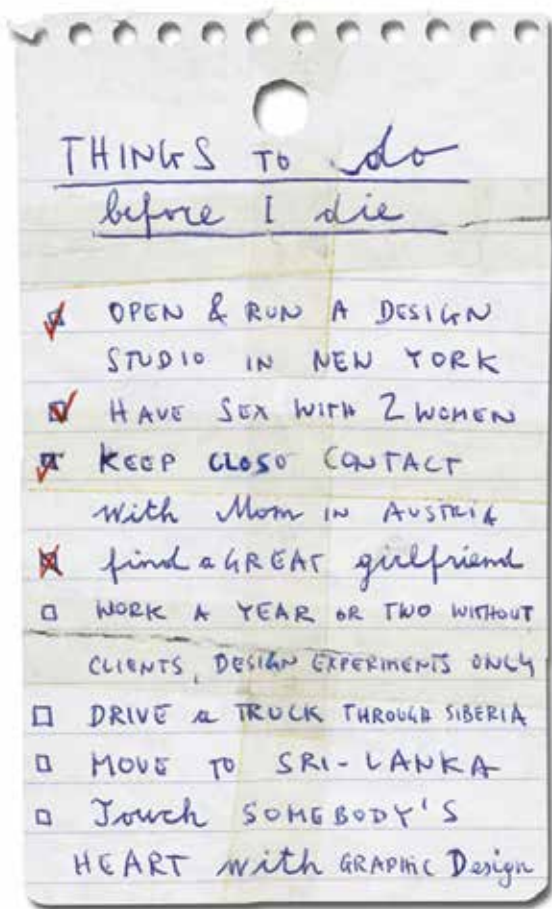 THINGS TO do
before I die
OPEN & RUN A DESIGN
STUDIO IN NEW YORK
HAVE SEX WITH 2 WOMEN
KEEP CLOSO CONTACT
with Mom IN AUSTRIA
find a GREAT girlfriend
WORK A YEAR OR TWO WITHOUT
CLIENTS, DESIGN EXPERIMENTS ONLY
DRIVE a TRUCK THROUGH SIBERIA
MOVE TO SRI-LANKA
Touch SOMEBODY'S
HEART with GRAPHIC Design